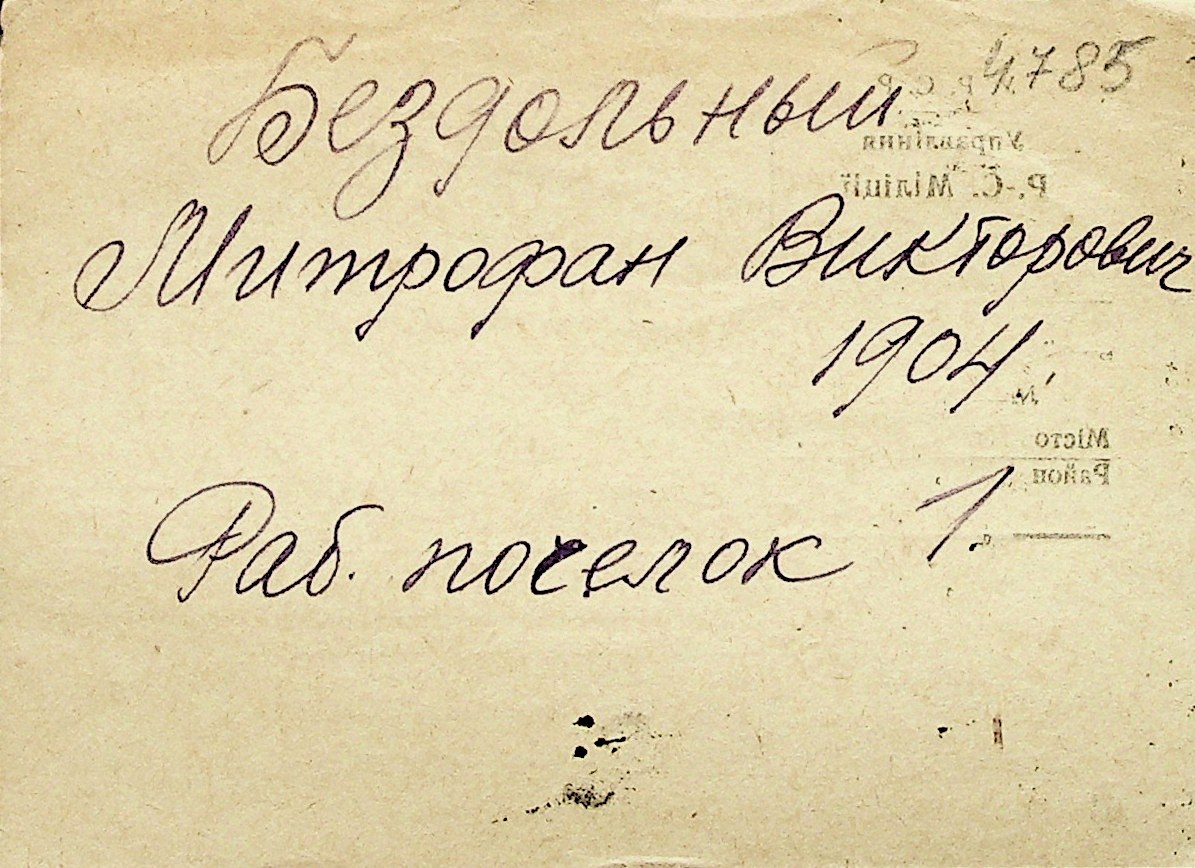 4785
Бездольный
Управління
Р.-С. Міліції
Митрофан Викторович
1904.
Місто
Район
Раб. поселок 1.